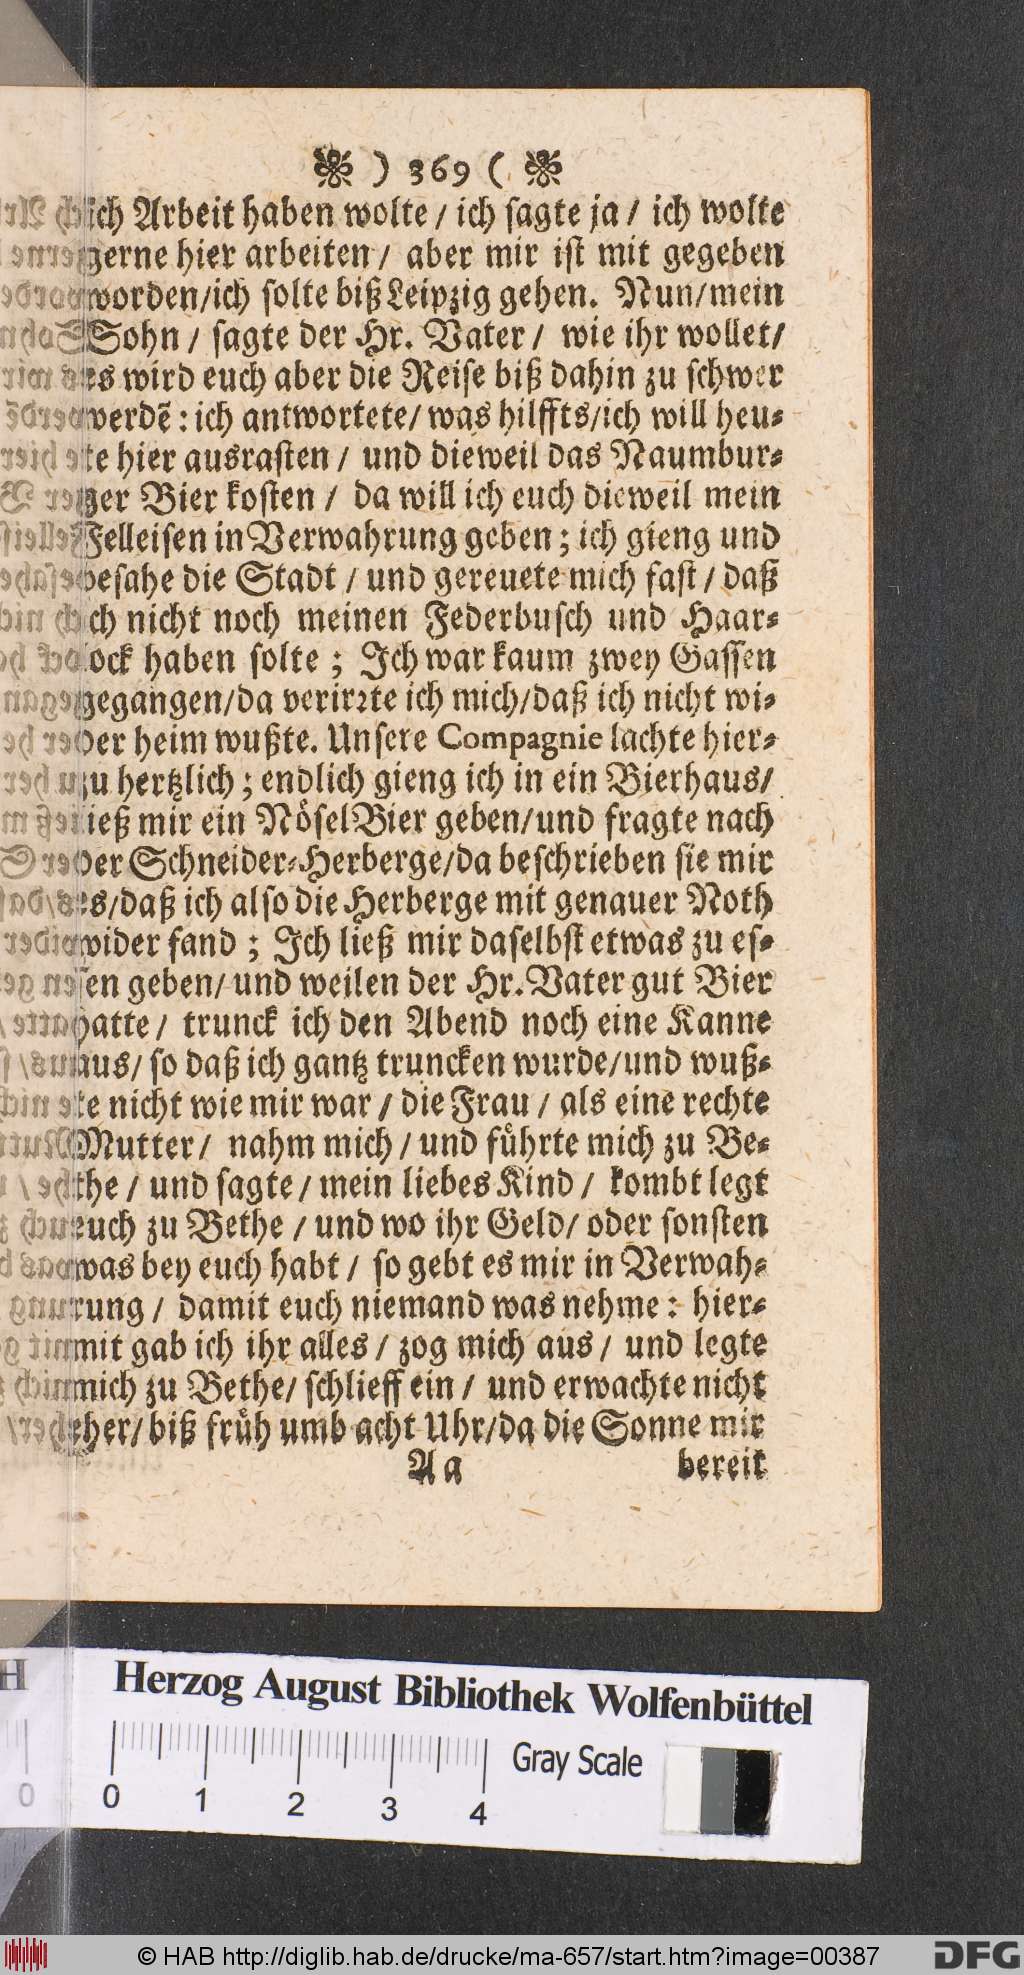 ) 369 (
ich Arbeit haben wolte / ich sagte ja / ich wolte
gerne hier arbeiten / aber mir ist mit gegeben
worden/ich solte biß Leipzig gehen. Nun/mein
Sohn / sagte der Hr. Vater / wie ihr wollet/
es wird euch aber die Reise biß dahin zu schwer
werdẽ : ich antwortete/ was hilffts/ich will heu-
te hier ausrasten / und dieweil das Naumbur-
ger Bier kosten / da will ich euch dieweil mein
Felleisen in Verwahrung geben ; ich gieng und
besahe die Stadt / und gereuete mich fast / daß
ich nicht noch meinen Federbusch und Haar-
lock haben solte ; Ich war kaum zwey Gassen
gegangen/da verirꝛte ich mich/daß ich nicht wi-
der heim wußte. Unsere Compagnie lachte hier-
zu hertzlich ; endlich gieng ich in ein Bierhaus/
ließ mir ein Nösel Bier geben/und fragte nach
der Schneider-Herberge/da beschrieben sie mir
es/daß ich also die Herberge mit genauer Noth
wider fand ; Ich ließ mir daselbst etwas zu es-
sen geben/ und weilen der Hr. Vater gut Bier
hatte / trunck ich den Abend noch eine Kanne
aus/ so daß ich gantz truncken wurde/und wuß-
te nicht wie mir war / die Frau / als eine rechte
Mutter / nahm mich / und führte mich zu Be-
the / und sagte / mein liebes Kind / kombt legt
euch zu Bethe / und wo ihr Geld/ oder sonsten
was bey euch habt / so gebt es mir in Verwah-
rung / damit euch niemand was nehme : hier-
mit gab ich ihr alles / zog mich aus / und legte
mich zu Bethe/ schlieff ein / und erwachte nicht
eher/ biß früh umb acht Uhr/da die Sonne mir
Aa bereit
Herzog August Bibliothek Wolfenbüttel
Gray Scale
0 0 1 2 3 4
© HAB http://diglib.hab.de/drucke/ma-657/start.htm?image=00387
DFG